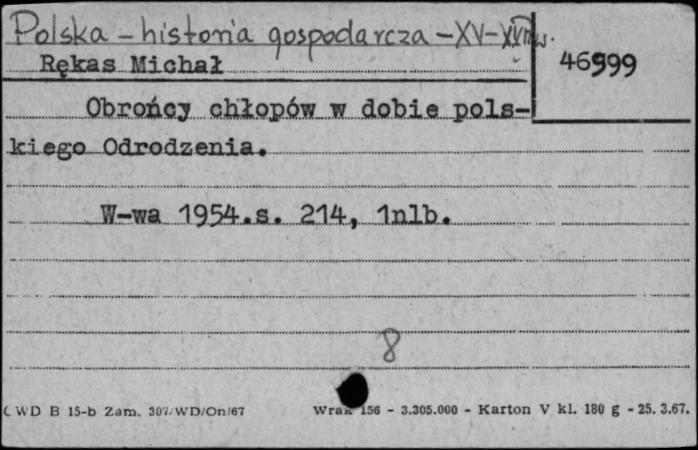 Polska - historia gospodarcza - XV - w.
Rękas Michał
46999
Obrońcy chłopów w dobie pols-
kiego Odrodzenia.
W-wa 1954.s. 214, 1nlb.
8
CWD B 15-b Zam. 307/WD/On/67
Wrak 156 - 3.305.000 - Karton V kl. 180 g - 25. 3.67.